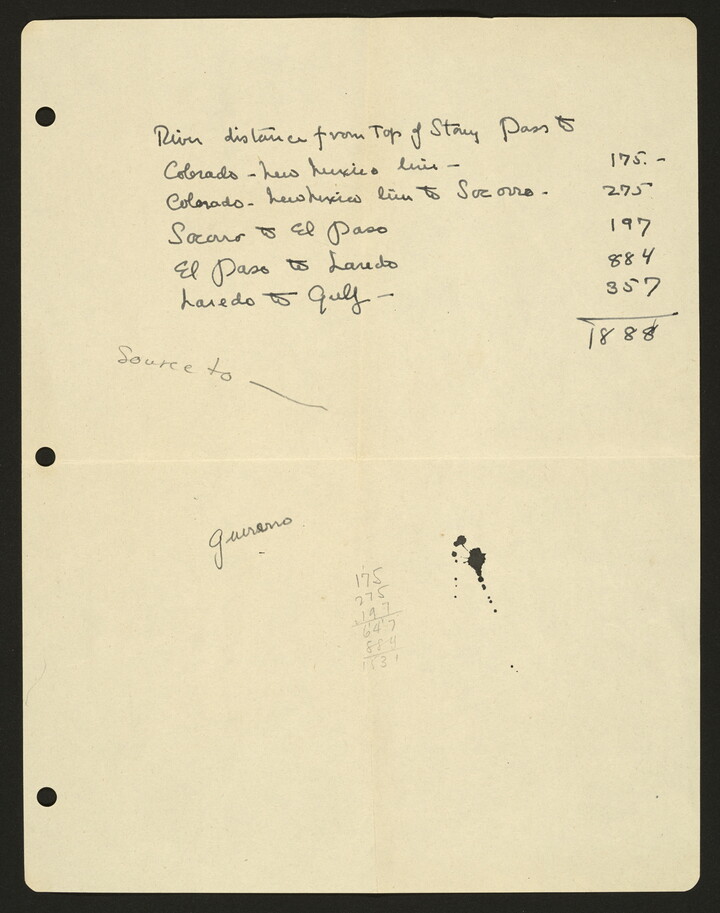 River distance from Top of Stony Pass to
Colorado - New Mexico line - 175. -
Colorado - New Mexico line to Socorro - 275
Socorro to El Paso 197
El Paso to Laredo 884
Laredo to Gulf - 357
1888
Source to
Guerrero
175
275
197
647
884
1531